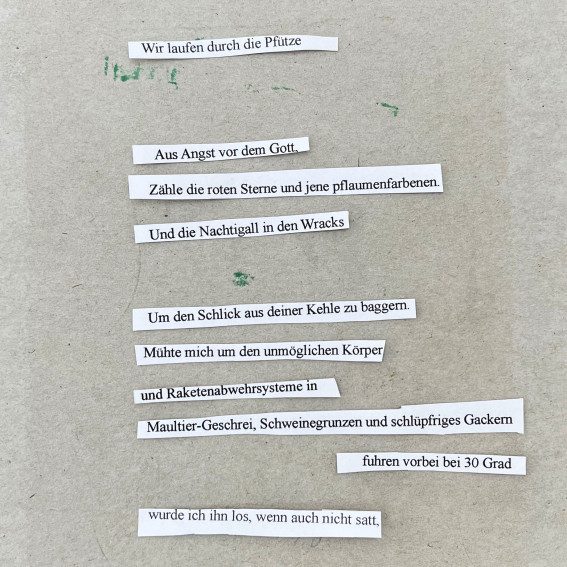 Wir laufen durch die Pfütze
Aus Angst vor dem Gott,
Zähle die roten Sterne und jene pflaumenfarbenen.
Und die Nachtigall in den Wracks
Um den Schlick aus deiner Kehle zu baggern.
Mühte mich um den unmöglichen Körper
und Raketenabwehrsysteme in
Maultier-Geschrei, Schweinegrunzen und schlüpfriges Gackern
fuhren vorbei bei 30 Grad
wurde ich ihn los, wenn auch nicht satt,